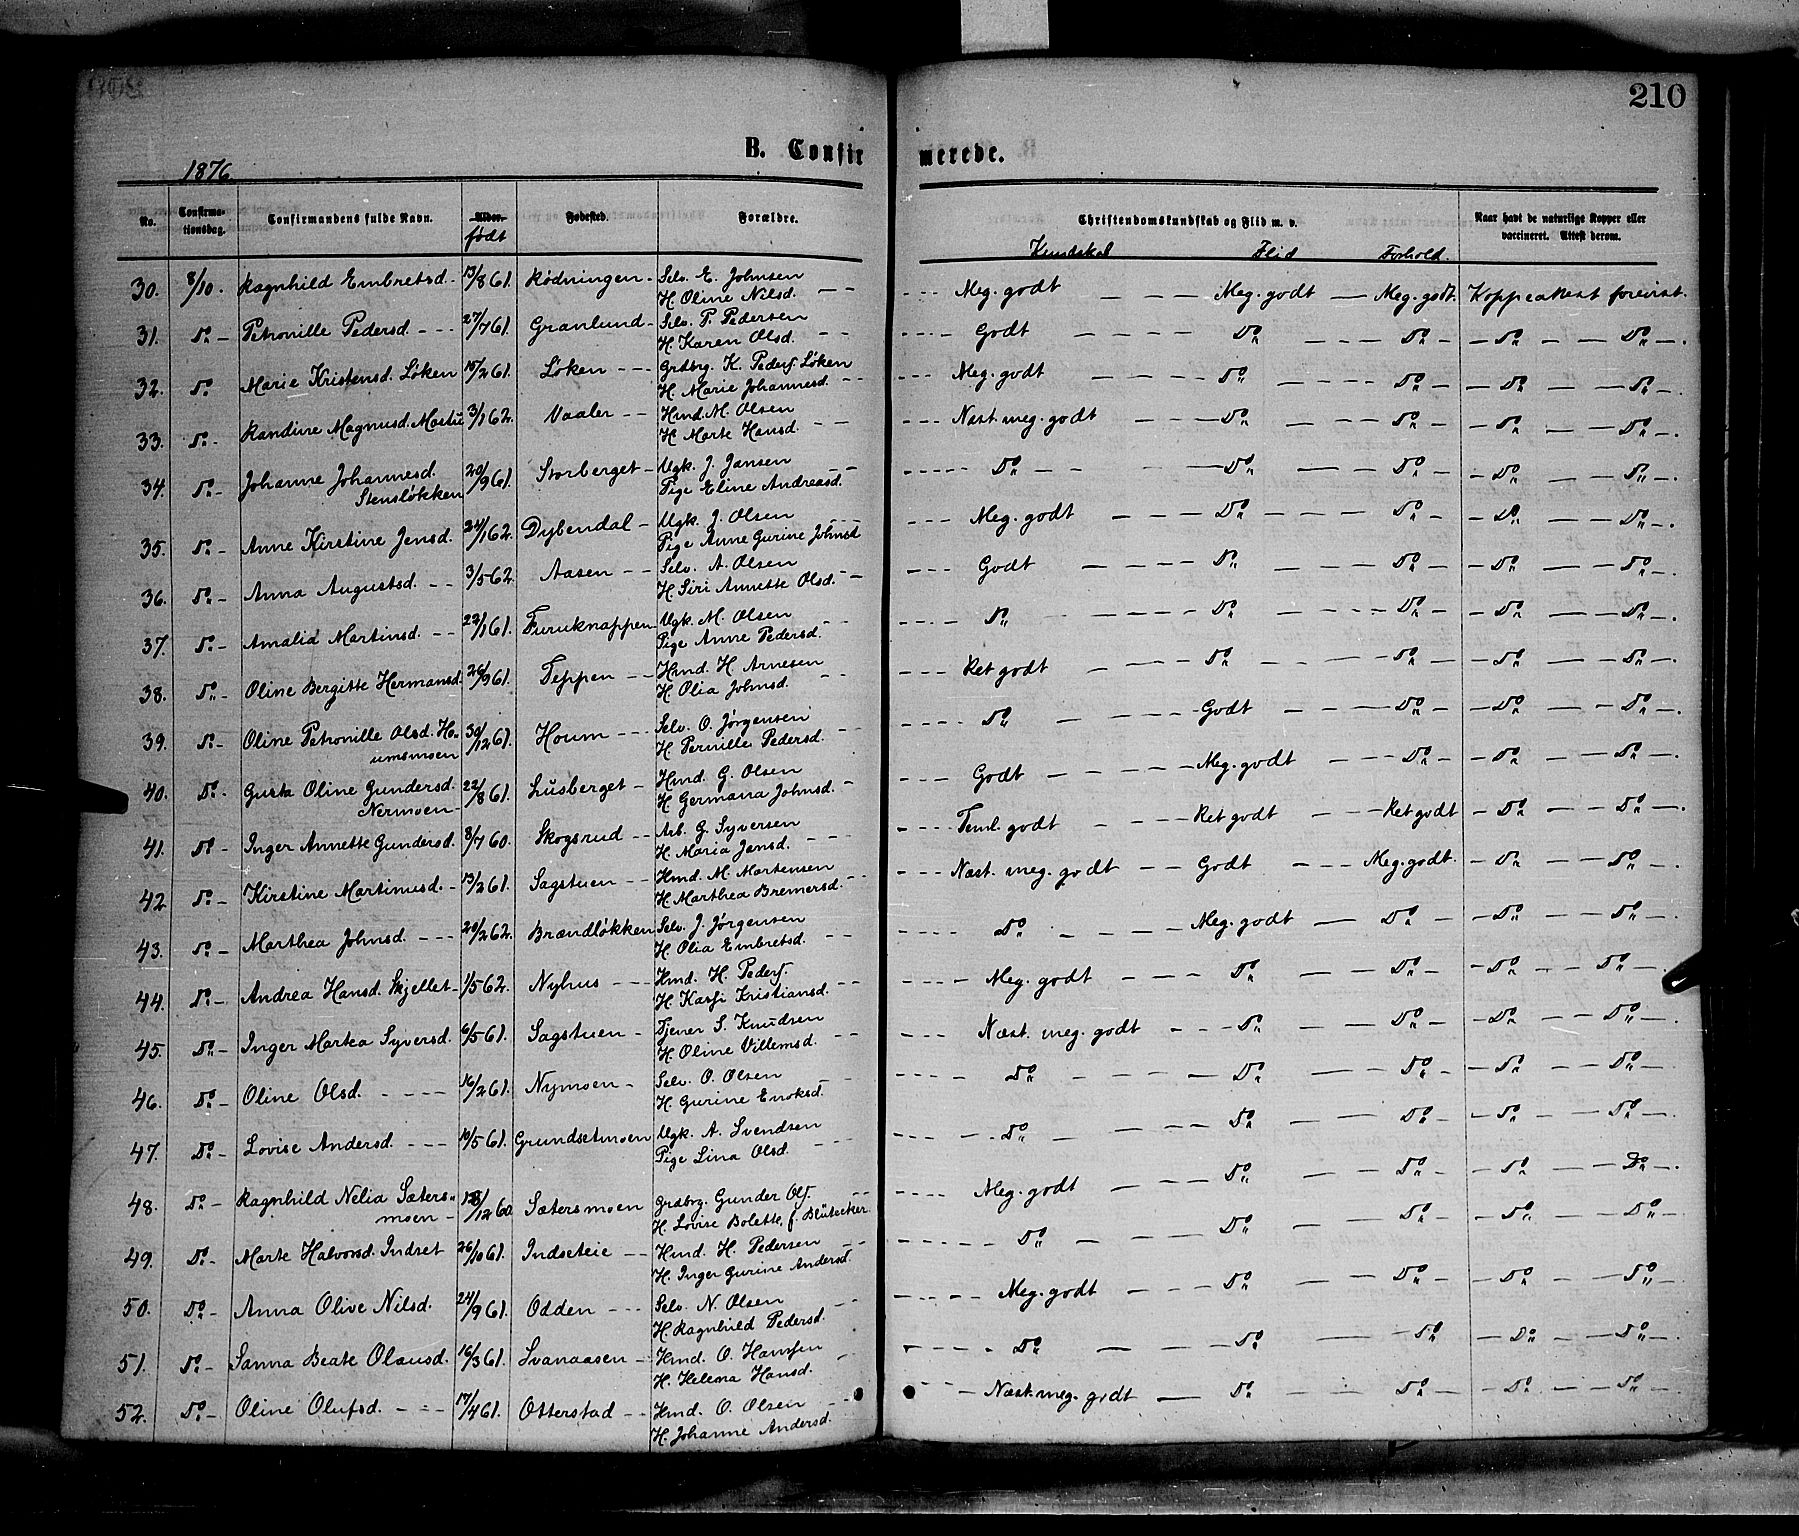 210
B. Confirmerede.
1876
No. Confirmationsdag. Confirmandens fulde Navn. Alder. født Fødested. Forældre. Christendomskundskab og Flid m. v. Kundskab Flid Forhold Naar havt de naturlige Kopper eller vaccineret. Attest derom.
30. 8/10. Ragnhild Embretsd. 13/8 61. Rødningen Selv. E. Johnsen
H. Oline Nilsd. Meg. godt Meg. godt Meg. godt. Koppeattest forevist.
31. Do Petronille Pedersd. 27/7 61. Granlund Selv. P. Pedersen
H. Karen Olsd. Godt Do Do Do Do
32. Do Marie Kristensd. Løken 15/2 61. Løken Grdbrg. K. Peders. Løken
H. Marie Johannesd. Meg. godt Do Do Do Do
33. Do Randine Magnusd. Mostu 3/1 62. Vaaler Hmd. M. Olsen
H. Marte Hansd. Næst. meg. godt Do Do Do Do
34. Do Johanne Johannesd. 20/9 61. Storberget Ugk. J. Jansen
Stensløkken Pige Eline Andreasd. Do Do Do Do Do
35. Do Anne Kirstine Jensd. 24/1 62. Dybendal Ugk. J. Olsen
Pige Anne Gurine Johnsd Meg. godt Do Do Do Do
36. Do Anna Augustsd. 3/5 62. Aasen Selv. A. Olsen
H. Siri Annette Olsd. Godt Do Do Do Do
37. Do Amalia Martinsd. 22/1 61. Furuknappen Ugk. M. Olsen
Pige Anne Pedersd. Do Do Do Do Do
38. Do Oline Bergitte Hermansd. 26/9 61. Teppen Hmd. H. Arnesen
H. Olia Johnsd. Ret godt Do Do Do Do
39. Do Oline Petronille Olsd. Ho- 30/12 61. Houm Selv. O. Jørgensen
umsmoen H. Pernille Pedersd. Do Godt Do Do Do
40. Do Gusta Oline Gundersd. 22/8 61. Lusberget Hmd. G. Olsen
Nermoen H. Germana Johnsd. Godt Meg. godt Do Do Do
41. Do Inger Annette Gundersd. 8/7 60. Skogsrud Arb. G. Syversen
H. Maria Jansd. Teml. godt Ret godt Ret godt Do Do
42 Do Kirstine Martinusd. 13/2 61. Sagstuen Hmd. M. Mortensen
H. Marthea Bremersd. Næst. meg. godt Godt Meg. godt. Do Do
43. Do Marthea Johnsd. 20/2 62. Brændløkken Selv. J. Jørgensen
H. Olia Embretsd. Do Meg. godt Do Do Do
44. Do Andrea Hansd. Skjellet 1/5 62. Nyhus Hmd. H. Peders.
H. Kari Kristiansd. Meg. godt Do Do Do Do
45. Do Inger Martea Syversd. 6/5 61. Sagstuen Tjener S. Knudsen
H. Oline Villemsd. Næst. meg. godt Do Do Do Do
46. Do Oline Olsd. 16/2 61. Nymoen Selv. O. Olsen
H. Gurine Enoksd. Do Do Do Do Do
47. Do Lovise Andersd. 10/5 61. Grundsetmoen Ugk. A. Svendsen
Pige Lina Olsd. Do Do Do Do Do
48. Do Ragnhild Nelia Sæters- /12 60. Sætersmoen Grdbrg. Gunder Ols.
moen H. Lovise Bolette, f. Meg. godt Do Do Do Do
49. Do Marte Halvorsd. Indset 26/10 61. Indseteie Hmd. H. Pedersen
H. Inger Gurine Andersd. Do Do Do Do Do
50. Do Anna Olive Nilsd. 24/9 61. Odden Selv. N. Olsen
H. Ragnhild Pedersd. Meg. godt Do Do Do Do
51. Do Sanna Beate Olausd. 16/3 61. Svanaasen Hmd. O. Hansen
H. Helena Hansd. Do Do Do Do Do
52. Do Oline Olufsd. 17/4 61. Otterstad Hmd. O. Olsen
H. Johanne Andersd. Næst. meg. godt Do Do Do Do